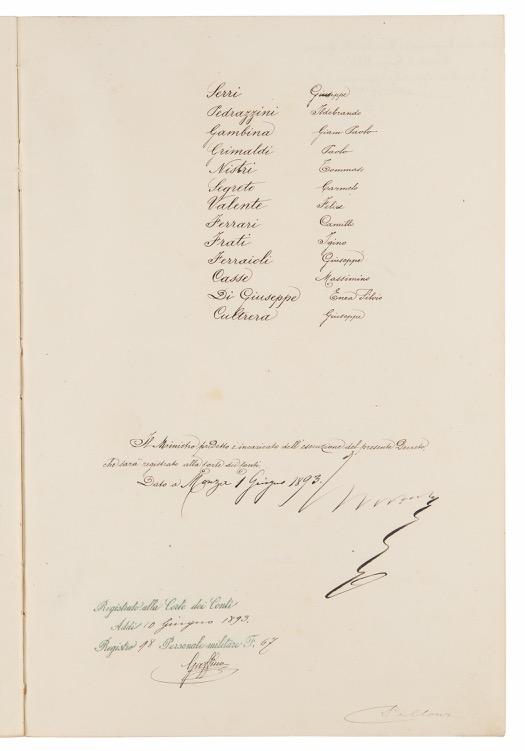 Serri Giuseppe
Pedrazzini Ildebrando
Gambina Giam Paolo
Grimaldi Paolo
Nistri Tommaso
Segreto Carmelo
Valente Felice
Ferrari Camillo
Frati Igino
Ferraioli Giuseppe
Casse Massimino
Di Giuseppe Enea Silvio
Cultrera Giuseppe
Il Ministro pdetto è incaricato dell'esecuzione del presente Decreto,
che sarà registrato alla Corte dei Conti.
Dato a Monza 1 Giugno 1893.
Registrato alla Corte dei Conti
Addì 10 Giugno 1893.
Registro 98 Personale militare F. 67
Pelloux